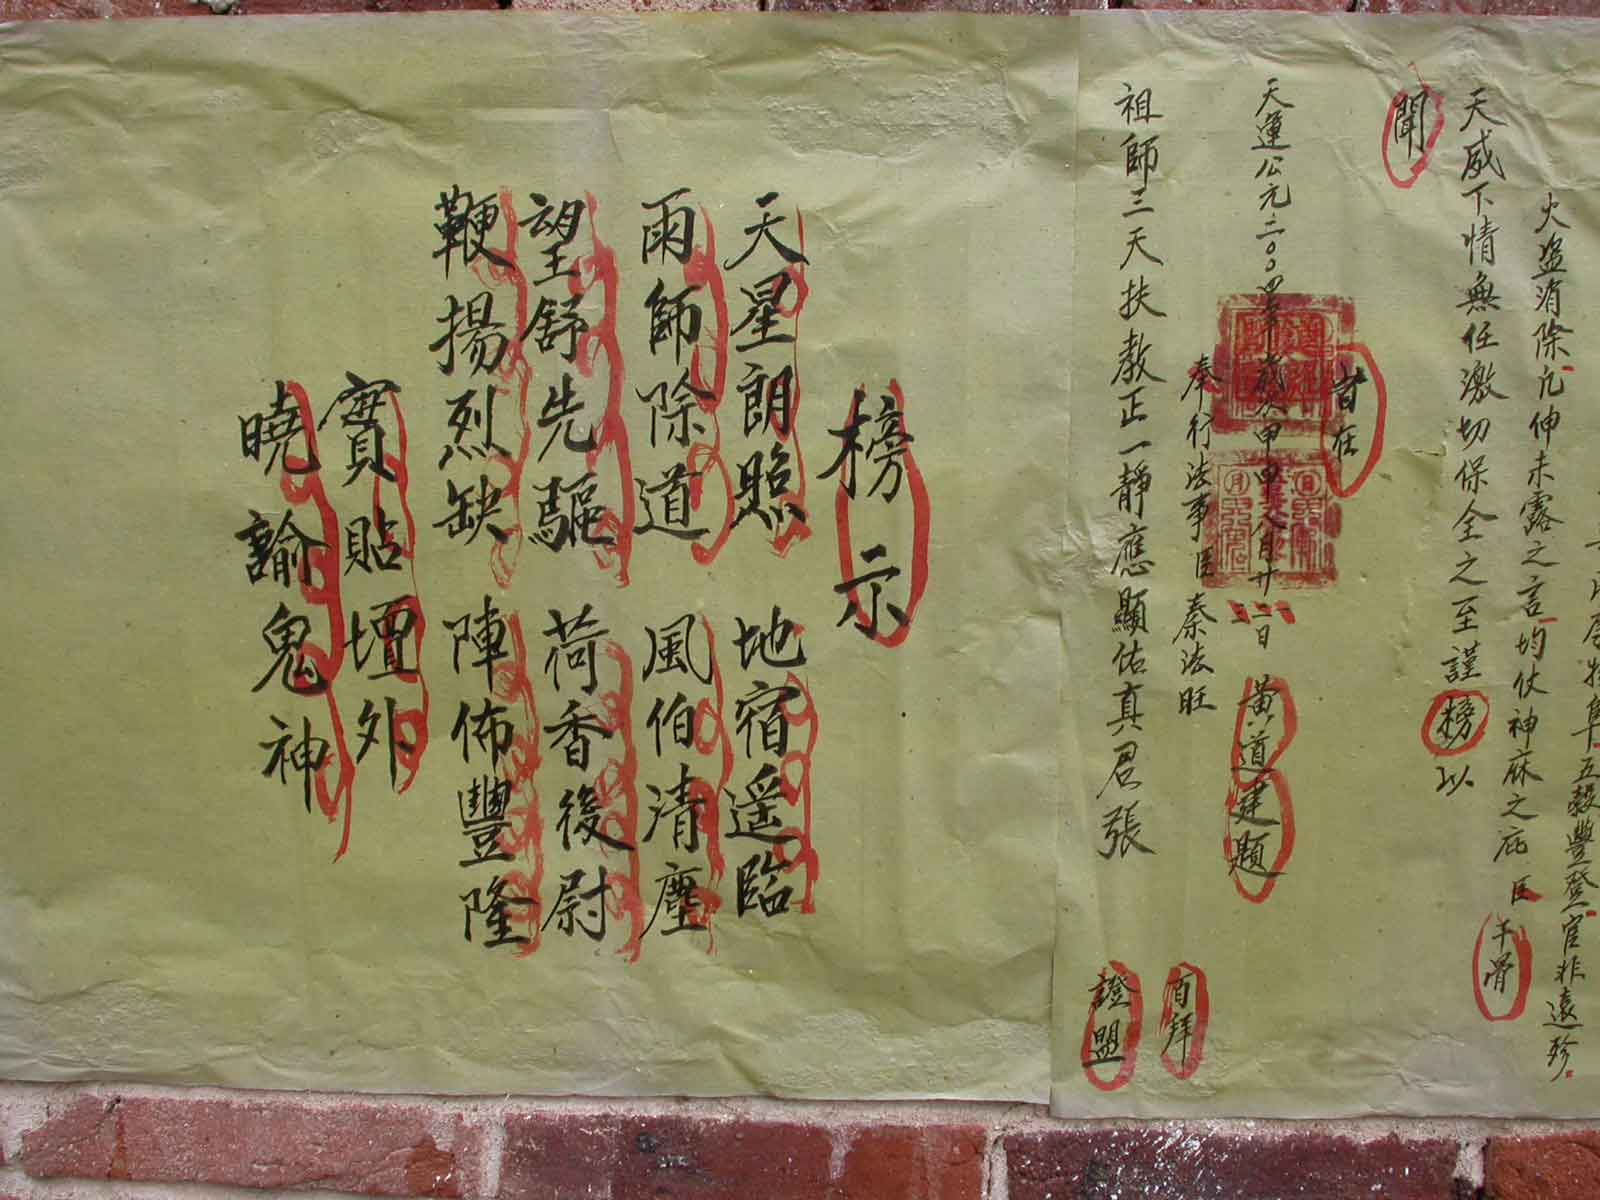 火盜消除凡伸未露之言均仗神庥之庇臣
五穀豐登官非遠殄
干冒
天威下情無任激切保全之至謹榜以
聞
天運公元二00四年歲次甲申八月廿二日 黃道建題
奉行法事臣秦法旺 百拜
祖師三天扶教正一靜應顯佑真君張 證盟
榜示
天星朗照 地宿遥臨
雨師除道 風伯清塵
望舒先驅 荷香後尉
鞭揚烈缺 陣佈豐隆
實貼壇外
曉諭鬼神